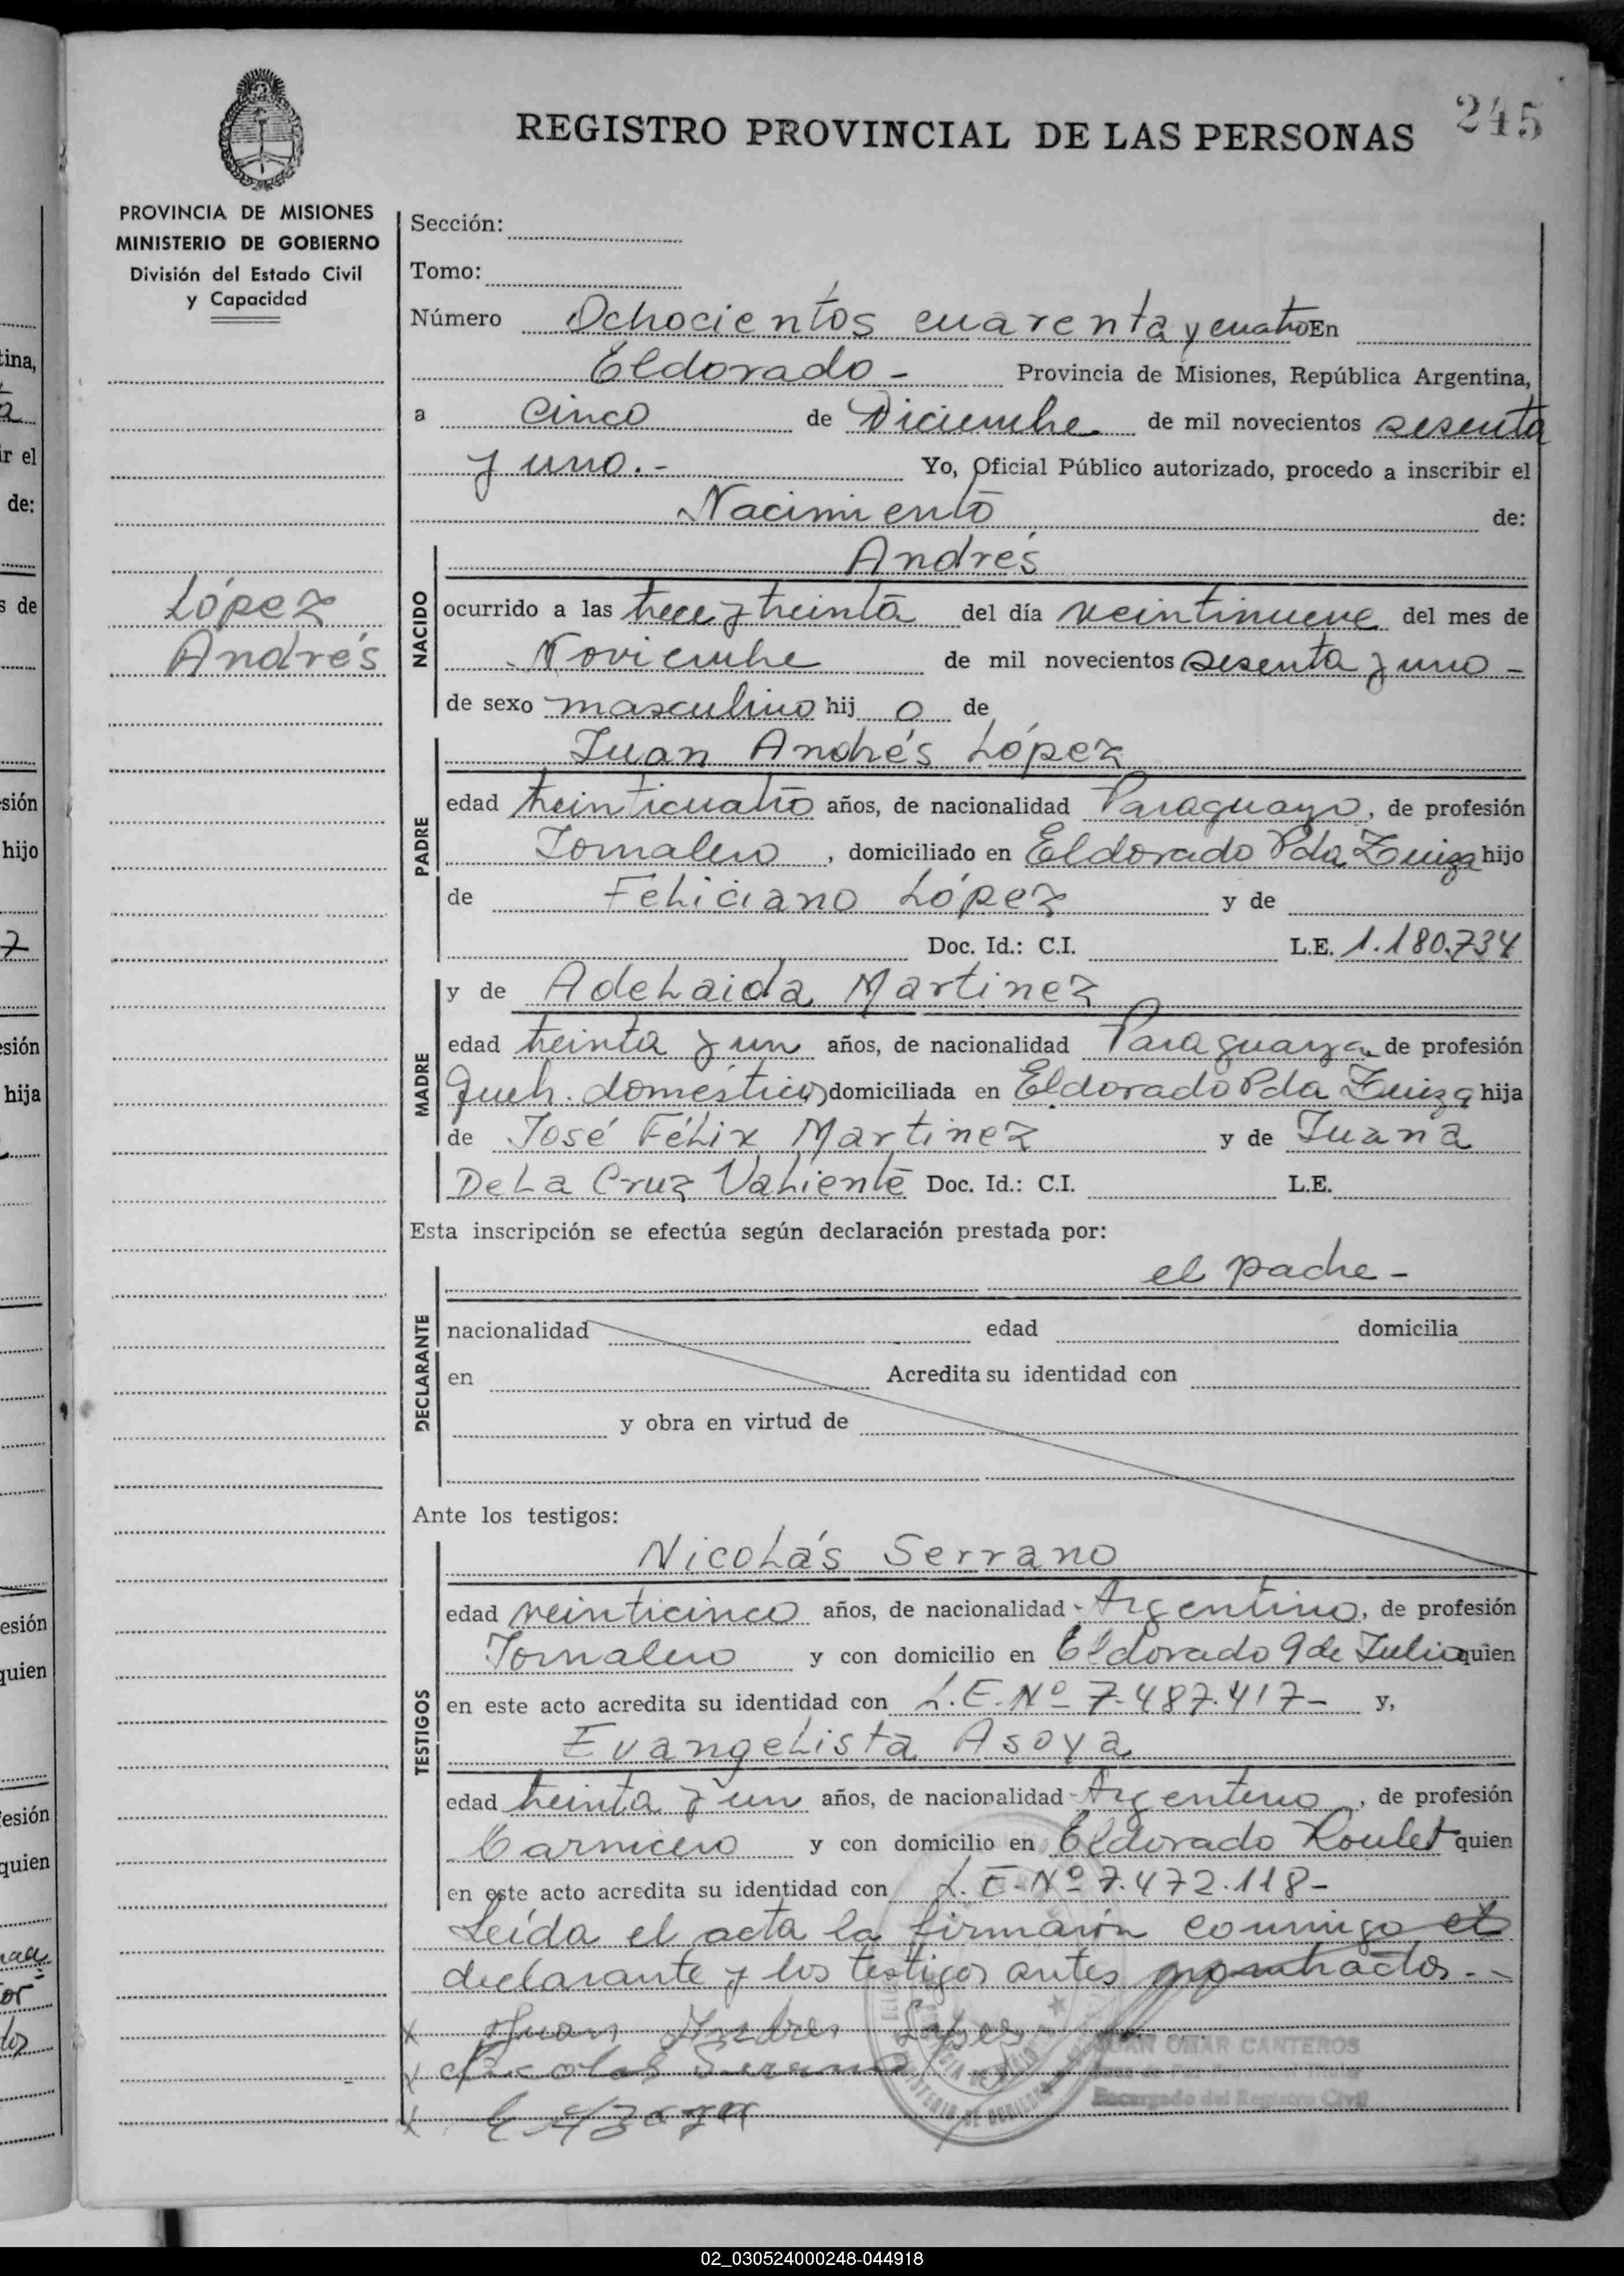 245
REGISTRO PROVINCIAL DE LAS PERSONAS
PROVINCIA DE MISIONES
MINISTERIO DE GOBIERNO
División del Estado Civil
y Capacidad
López
Andrés
Sección:
Tomo:
Número Ochocientos cuarenta y cuatro En
Eldorado - Provincia de Misiones, República Argentina,
a cinco de Diciembre de mil novecientos sesenta
y uno.- Yo, Oficial Público autorizado, procedo a inscribir el
Nacimiento de:
NACIDO
Andrés
ocurrido a las trece y treinta del día veintinueve del mes de
Noviembre de mil novecientos sesenta y uno -
de sexo masculino hij o de
PADRE
Juan Andrés López
edad treinticuatro años, de nacionalidad Paraguayo, de profesión
Jornalero, domiciliado en Eldorado Pda Zuiza hijo
de Feliciano López y de
Doc. Id.: C.I. L.E. 1.180.734
MADRE
y de Adelaida Martinez
edad treinta y un años, de nacionalidad Paraguaya de profesión
queh. domésticos domiciliada en Eldorado Pda Zuiza hija
de José Félix Martinez y de Juana
De La Cruz Valiente Doc. Id.: C.I. L.E.
Esta inscripción se efectúa según declaración prestada por:
DECLARANTE
el padre -
nacionalidad edad domicilia
en Acredita su identidad con
y obra en virtud de
Ante los testigos:
TESTIGOS
Nicolás Serrano
edad veinticinco años, de nacionalidad Argentino, de profesión
Jornalero y con domicilio en Eldorado 9 de Julio quien
en este acto acredita su identidad con L.E. Nº 7.487.417- y,
Evangelista Asoya
edad treinta y un años, de nacionalidad Argentino, de profesión
Carnicero y con domicilio en Eldorado Roulet quien
en este acto acredita su identidad con L.E. Nº 7.472.118-
Leída el acta la firmaron conmigo el
declarante y los testigos antes nombrados.-
x Juan Andres Lopes
x Nicolas Serrano
x E Azoya
JUAN OMAR CANTEROS
Encargado del Registro Civil
02_030524000248-044918